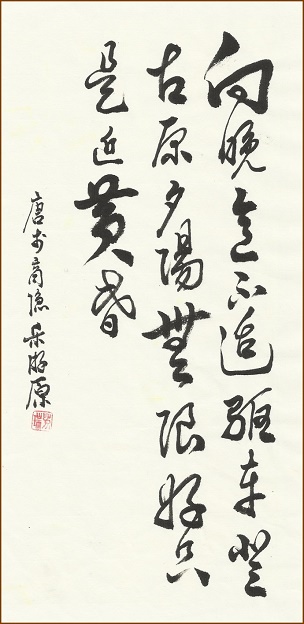 向晚意不適驅車登
古原夕陽無限好只
是近黃昏
唐李商隱樂游原